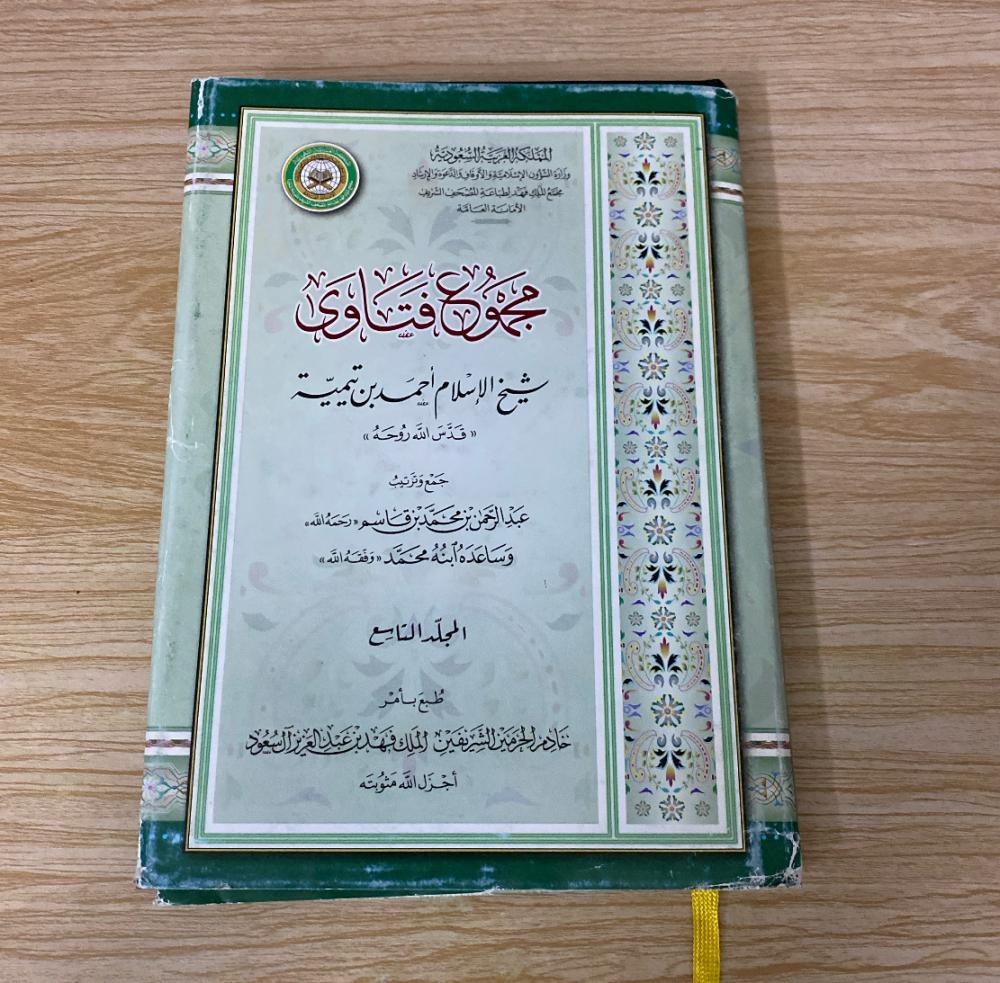 المملكة العربية السعودية
وزارة الشؤون الإسلامية والأوقاف والدعوة والإرشاد
مجمع الملك فهد لطباعة المصحف الشريف
الأمانة العامة
مجموع فتاوى
شيخ الإسلام أحمد بن تيمية
«قَدَّسَ اللَّه رُوحَهُ»
جَمْع وَتَرتيبُ
عبد الرحمن بن محمد بن قاسم «رَحمَهُ اللَّه»
وَسَاعَدَهُ ابنُهُ محمَّد «وَفّقَهُ اللَّه»
المجلّد التاسع
طُبعَ بأمْر
خادم الحرمين الشريفين الملك فهد بن عبد العزيز آل سعود
أجزَل اللَّه مَثوبتَه